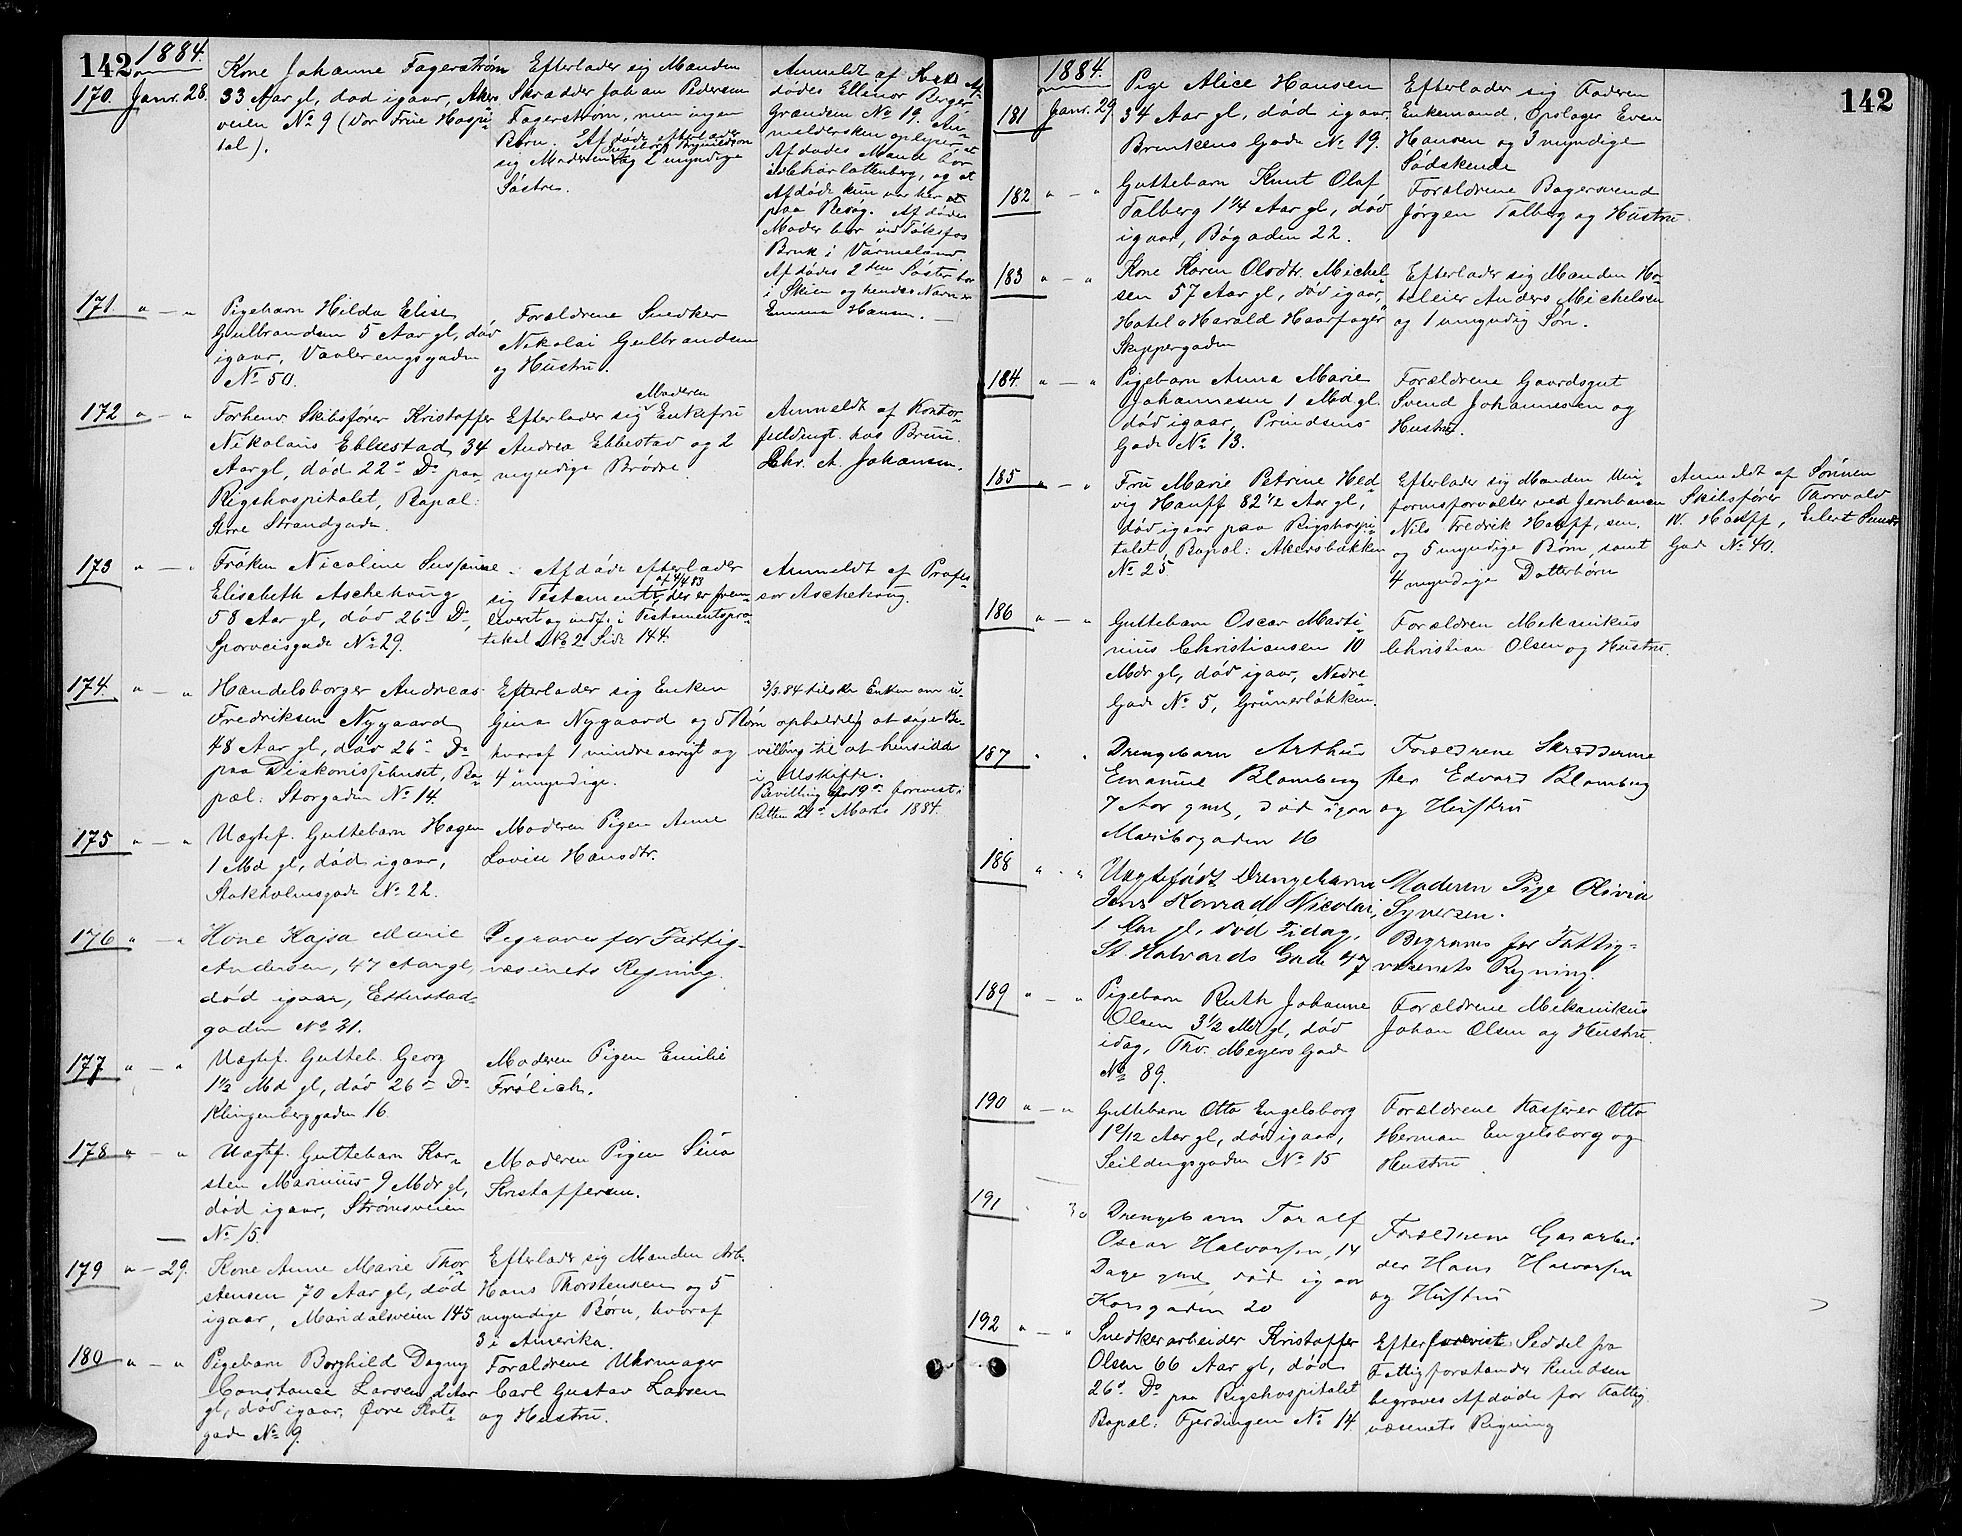 142
1884.
170. Janr. 28.
Kone Johanne Fagerstrøm
33 Aar gl, død igaar, Akers
veien No 9 (Vor Frue Hospi-
tal).
Efterlader sig Manden
Skrædder Johan Pedersen
Fagerstrøm, men ingen
Børn. Afdøde efterlader
sig Moderen Ingeborg og 2 myndige
Søstre.
Anmeldt af
dødes Ellinor Berger
Grændsen No 19. An-
meldersken oplyser, at
Afdødes Mand bor
i Charlottenberg, og at
Afdøde kun var her
paa Besøg. Afdødes
Moder bor ved Töksfos
Bruk i Värmeland.
Afdødes 2den Søster bor
i Skien og hendes Navn er
Emma Hansen.
171. " — "
Pigebarn Hilda Elise
Gulbrandsen 5 Aar gl, død
igaar, Vaalerengsgaden
No 50.
Forældrene Snedker
Nikolai Gulbrandsen
og Hustru.
172 " — "
Forhenv. Skibsfører Kristoffer
Nikolaus Ebbestad 34
Aar gl, død 22de Ds paa
Rigshospitalet, Bopæl:
Store Strandgade.
Efterlader sig Moderen Enkefru
Andrea Ebbestad og 2
myndige Brødre.
Anmeldt af Kontor-
fuldmgt. hos Bruun
Chr. A. Johansen.
173 " — "
Frøken Nicoline Susanne
Elisabeth Aschehoug
58 Aar gl, død 26de Ds,
Sporveisgade No 29.
Afdøde efterlader
sig Testament af 4/4 83, der er frem-
leveret og indf. i Testamentspro-
tokol No 2 Side 144.
Anmeldt af Profes-
sor Aschehoug.
174. " — "
Handelsborger Andreas
Fredriksen Nygaard
48 Aar gl, død 26de Ds
paa Diakonissehuset, Bo-
pæl: Storgaden No 14.
Efterlader sig Enken
Gina Nygaard og 5 Børn
hvoraf 1 mindreaarigt og
4 umyndige.
3/3.84 tilskr. Enken om u-
opholdelig at søge Be-
villing til at hensidde
i Uskifte.
Bevilling af 19de forevist i
Retten 21de Marts 1884.
175 " — "
Uægtef. Guttebarn Hagen
1 Md gl, død igaar,
Stokholmsgade No 22.
Moderen Pigen Anne
Lovise Hansdtr.
176 " — "
Kone Kajsa Marie
Andersen, 47 Aar gl,
død igaar, Etterstad-
gaden No 21.
Begraves for Fattig-
væsenets Regning.
177 " — "
Uægtef. Gutteb. Georg
1 1/2 Md gl, død 26de Ds
Klingenberggaden 16.
Moderen Pigen Emilie
Frølich.
178 " — "
Uægtef. Guttebarn Kar-
sten Marinius 9 Mdr gl,
død igaar, Strømsveien
No 15.
Moderen Pigen Sina
Kristoffersen.
179 " — 29.
Kone Anne Marie Thor-
stensen 70 Aar gl, død
igaar, Maridalsveien 145
Efterlader sig Manden Arb.
Hans Thorstensen og 5
myndige Børn, hvoraf
3 i Amerika.
180 " — "
Pigebarn Borghild Dagny
Constance Larsen 2 Aar
gl, død igaar, Øvre Slots-
gade No 9.
Forældrene Uhrmager
Carl Gustav Larsen
og Hustru.
142
1884.
181 Janr. 29
Pige Alice Hansen
34 Aar gl, død igaar,
Brinkens Gade No 19.
Efterlader sig Faderen
Enkemand, Opslager Even
Hansen og 3 myndige
Sødskende
182 " — "
Guttebarn Knut Olaf
Talberg 1 1/4 Aar gl, død
igaar, Bøgaden 22.
Forældrene Bagersvend
Jørgen Talberg og Hustru.
183 " — "
Kone Karen Olsdtr. Michel-
sen 57 Aar gl, død igaar,
Hotel "Harald Haarfager"
Skippergaden
Efterlader sig Manden Ho-
teleier Anders Michelsen
og 1 umyndig Søn.
184. " — "
Pigebarn Anna Marie
Johannesen 1 Md. gl.
død igaar, Prindsens
Gade No 13.
Forældrene Gaardsgut
Svend Johannesen og
Hustru.
185 " — "
Fru Marie Petrine Hed-
vig Hauff 82 1/2 Aar gl,
død igaar paa Rigshospi-
talet, Bopæl: Akersbakken
No 25
Efterlader sig Manden Uni-
formsforvalter ved Jernbanen
Nils Fredrik Hauff, sen.
og 5 myndige Børn, samt
4 myndige Datterbørn
Anmeldt af Sønnen
Skibsfører Thorvald
N. Hauff, Eilert Sundts
Gad No 40.
186 " — "
Guttebarn Oscar Marti-
nius Christiansen 10
Mdr gl, død igaar, Nedre
Gade No 5, Grünerløkken.
Forældren Mekanikus
Christian Olsen og Hustru.
187 " "
Drengebarn Arthur
Emanuel Blomberg
7 Aar gml, død igaar
Maribogaden 16
Forældrene Skræderme
ster Edvard Blomberg
og Hustru
188 " - "
Uægtefødt Drengebarn
Jens Konrad Nicolai,
1 Aar gl, død Idag,
St Halvards Gade 47
Moderen Pige Olivia
Syversen.
Begraves for Fattig-
væsenets Regning.
189 " — "
Pigebarn Ruth Johanne
Olsen 3 1/2 Md gl, død
idag, Thv. Meyers Gade
No 89.
Forældrene Mekanikus
Johan Olsen og Hustru.
190 " — "
Guttebarn Otto Engelsborg
1 9/12 Aar gl, død igaar,
Seildugsgaden No 15
Forældrene Kasserer Otto
Herman Engelsborg og
Hustru.
191 30
Drengebarn Toralf
Oscar Halvorsen, 14
Dage gml død igaar
Korsgaden 20
Forældrene Gasarbei
der Hans Halvorsen
og Hustru
192 " — "
Snedkerarbeider Kristoffer
Olsen 66 Aar gl, død
26de Ds paa Rigshospitalet
Bopæl: Fjerdingen No 14.
Efter forevist Seddel fra
Fattigforstander Knudsen
begraves Afdøde for Fattig
væsenets Regning